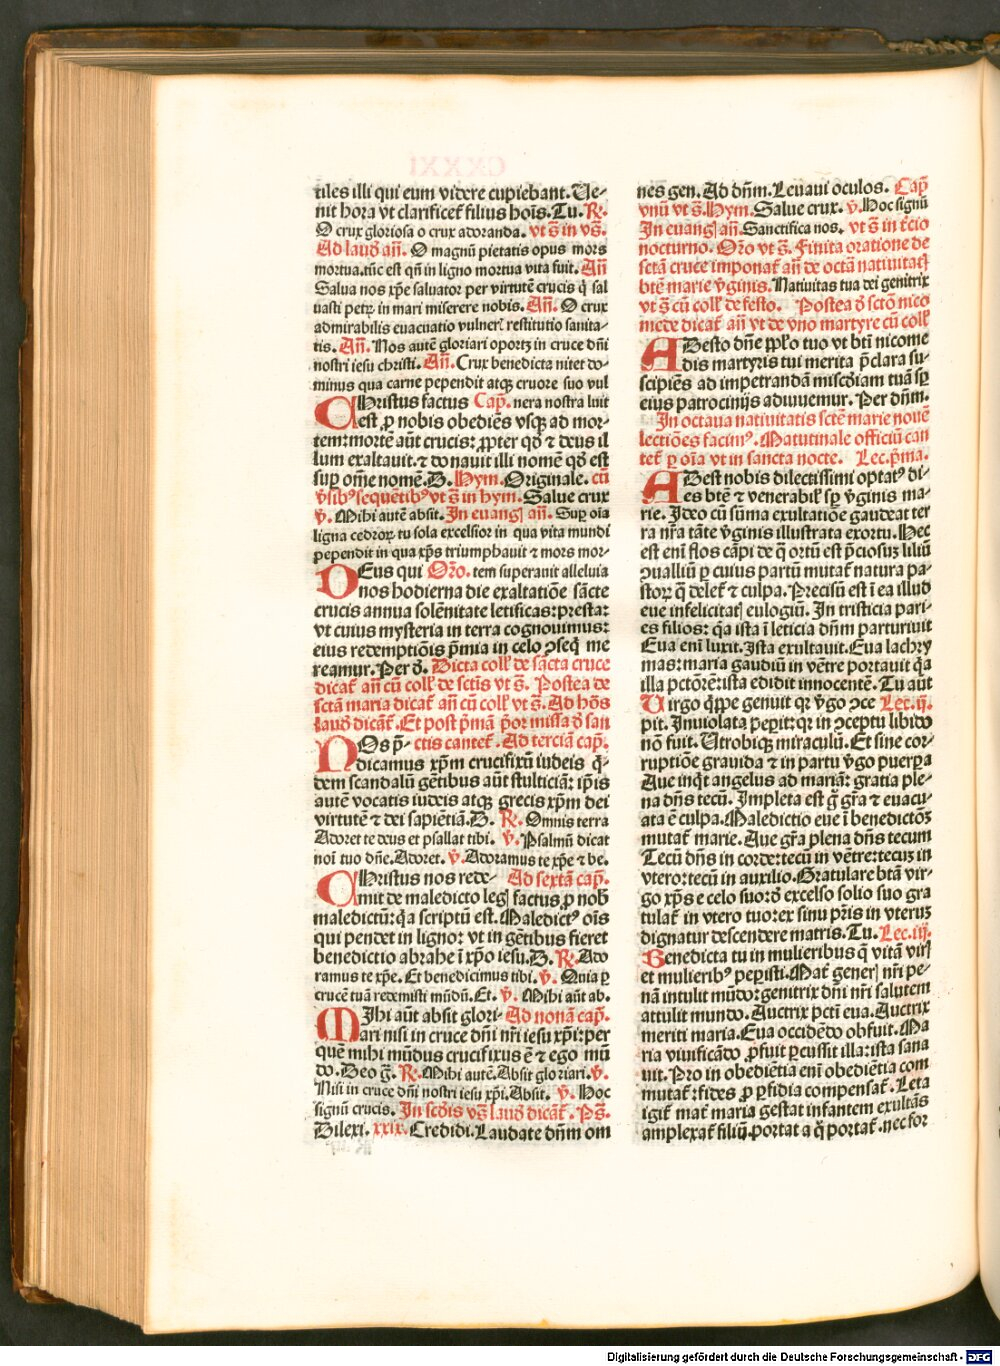 tiles illi qui eum videre cupiebant. Ue-
nit hora vt clarificet̄ filius hoīs. Tu. R̷.
O crux gloriosa o crux adoranda. vt s̄ in vs̄.
Ad laud̄ an̄. O magnū pietatis opus mors
mortua. tūc est qn̄ in ligno mortua vita fuit. An̄
Salua nos xp̄e saluator per virtutē crucis q̄ sal
uasti petrꝫ in mari miserere nobis. An̄. O crux
admirabilis euacuatio vulnerꝝ restitutio sanita-
tis. An̄. Nos autē gloriari oportꝫ in cruce dn̄i
nostri iesu christi. An̄. Crux benedicta nitet do-
minus qua carne pependit atqꝫ cruore suo vul
CHristus factus Cap̄. nera nostra luit
est ꝓ nobis obediēs vsqꝫ ad mor-
tem: mortē aūt crucis: ꝓpter qd̄ ⁊ deus il
lum exaltauit. ⁊ donauit illi nomē qd̄ est
suꝑ om̄e nomē. D. Hym. Originale. cū
v̄sibꝰ sequētibꝰ vt s̄ in hym. Salue crux
v̄. Mihi autē absit. In euangꝭ an̄. Suꝑ oīa
ligna cedroꝝ tu sola excelsior in qua vita mundi
pependit in qua xp̄s triumphauit ⁊ mors mor-
DEus qui Or̄o. tem superauit alleluia
nos hodierna die exaltatiōe sācte
crucis annua solēnitate letificas: presta:
vt cuius mysteria in terra cognouimus:
eius redemptiōis p̄mia in celo ↄseq̄ me
reamur. Per d̄. Dicta coll̄ de sācta cruce
dicat̄ an̄ cū coll̄ de sctīs vt s̄. Postea de
sctā maria dicat̄ an̄ cū coll̄ vt s̄. Ad hōs
laud̄ dicāt̄. Et post p̄mā p̄or missa d̄ san
NOs p̄- ctis cantet̄. Ad terciā cap̄.
dicamus xp̄m crucifixū iudeis q̄-
dem scandalū gētibus aūt stulticiā: ip̄is
autē vocatis iudeis atqꝫ grecis xp̄m dei
virtutē ⁊ dei sapiētiā. D. R̷. Omnis terra
Adoret te deus et psallat tibi. v̄. Psalmū dicat
noī tuo dn̄e. Adoret. v̄. Adoramus te xp̄e ⁊ be.
CHristus nos rede- Ad sextā cap̄.
mit de maledicto legꝭ factus ꝓ nob̄
maledictū: q̄a scriptū est. Maledictꝰ oīs
qui pendet in ligno: vt in gētibus fieret
benedictio abrahe ī xp̄o iesu. D. R̷. Ado
ramus te xp̄e. Et benedicimus tibi. v̄. Quia ꝑ
crucē tuā redemisti mūdū. Et. v̄. Mihi aūt ab.
MIhi aūt absit glori- Ad nonā cap̄.
ari nisi in cruce dn̄i nr̄i iesu xp̄i: per
quē mihi mūdus crucifixus ē ⁊ ego mū
do. Deo ḡ. R̷. Mihi autē. Absit gloriari. v̄.
Nisi in cruce dn̄i nostri iesu xp̄i. Absit. v̄. Hoc
signū crucis. In scd̄is vs̄ laud̄ dicāt̄. Ps̄.
Dilexi. xxix. Credidi. Laudate dn̄m om
nes gen. Ad dn̄m. Leuaui oculos. Cap̄
vnū vt s̄. Hym. Salue crux. v̄. Hoc signū
In euangꝭ an̄. Sanctifica nos. vt s̄ in t̄cio
nocturno. Or̄o vt s̄. Finita oratione de
sctā cruce imponat̄ an̄ de octā natiuitatꝭ
btē marie v̄ginis. Natiuitas tua dei genitrix
vt s̄ cū coll̄ de festo. Postea d̄ sctō nico
mede dicat̄ an̄ vt de vno martyre cū coll̄
ADesto dn̄e pp̄lo tuo vt bt̄i nicome
dis martyris tui merita p̄clara su-
scipiēs ad impetrandā miscd̄iam tuā sp̄
eius patrocinijs adiuuemur. Per dn̄m.
In octaua natiuitatis sctē marie nouē
lectiōes facimꝰ. Matutinale officiū can
tet̄ ꝑ oīa vt in sancta nocte. Lec. p̄ma.
ADest nobis dilectissimi optatꝰ di-
es btē ⁊ venerabil̄ sp̄ v̄ginis ma-
rie. Ideo cū sūma exultatiōe gaudeat ter
ra nr̄a tāte v̄ginis illustrata exortu. Hec
est enī flos cāpi de q̄ ortū est p̄ciosuꝫ liliū
ↄualliū ꝑ cuius partū mutat̄ natura pa-
stoꝝ q̄ delet̄ ⁊ culpa. Precisū est ī ea illud
eue infelicitatꝭ eulogiū. In tristicia pari-
es filios: q̄a ista ī leticia dn̄m parturiuit
Eua enī luxit. Ista exultauit. Eua lachry
mas: maria gaudiū in vētre portauit q̄a
illa pctōrē: ista edidit innocentē. Tu aūt
Uirgo q̄ppe genuit qꝛ v̄go ↄce Lec. ij.
pit. Inuiolata peperit: qꝛ in ↄceptu libido
nō fuit. Utrobiqꝫ miraculū. Et sine cor-
ruptiōe grauida ⁊ in partu v̄go puerpa
Aue inq̄t angelus ad mariā: gratia ple-
na dn̄s tecū. Impleta est g̊ gr̄a ⁊ euacu-
ata ē culpa. Maledictio eue ī benedictōꝫ
mutat̄ marie. Aue gr̄a plena dn̄s tecum
Tecū dn̄s in corde: tecū in vētre: tecuꝫ in
vtero: tecū in auxilio. Gratulare btā vir-
go xp̄s e celo suorꝫ excelso solio suo gra
tulat̄ in vtero tuo: ex sinu pr̄is in vteruꝫ
dignatur descendere matris. Tu. Lec. iij.
Benedicta tu in mulieribus q̄ vitā virꝭ
et mulieribꝰ peperisti. Mat̄ generꝭ nr̄i pe-
nā intulit mūdo: genitrix dn̄i nr̄i salutem
attulit mundo. Auctrix pctī eua. Auctrix
meriti maria. Eua occidēdo obfuit. Ma
ria viuificādo ꝓfuit ꝑcussit illa: ista sana
uit. Pro in obediētia enī obediētia com
mutat̄: fides ꝓ ꝑfidia compensat̄. Leta
igit̄ mat̄ maria gestat infantem exultās
amplexat̄ filiū. portat a q̊ portat̄. nec for
Digitalisierung gefördert durch die Deutsche Forschungsgemeinschaft - DFG